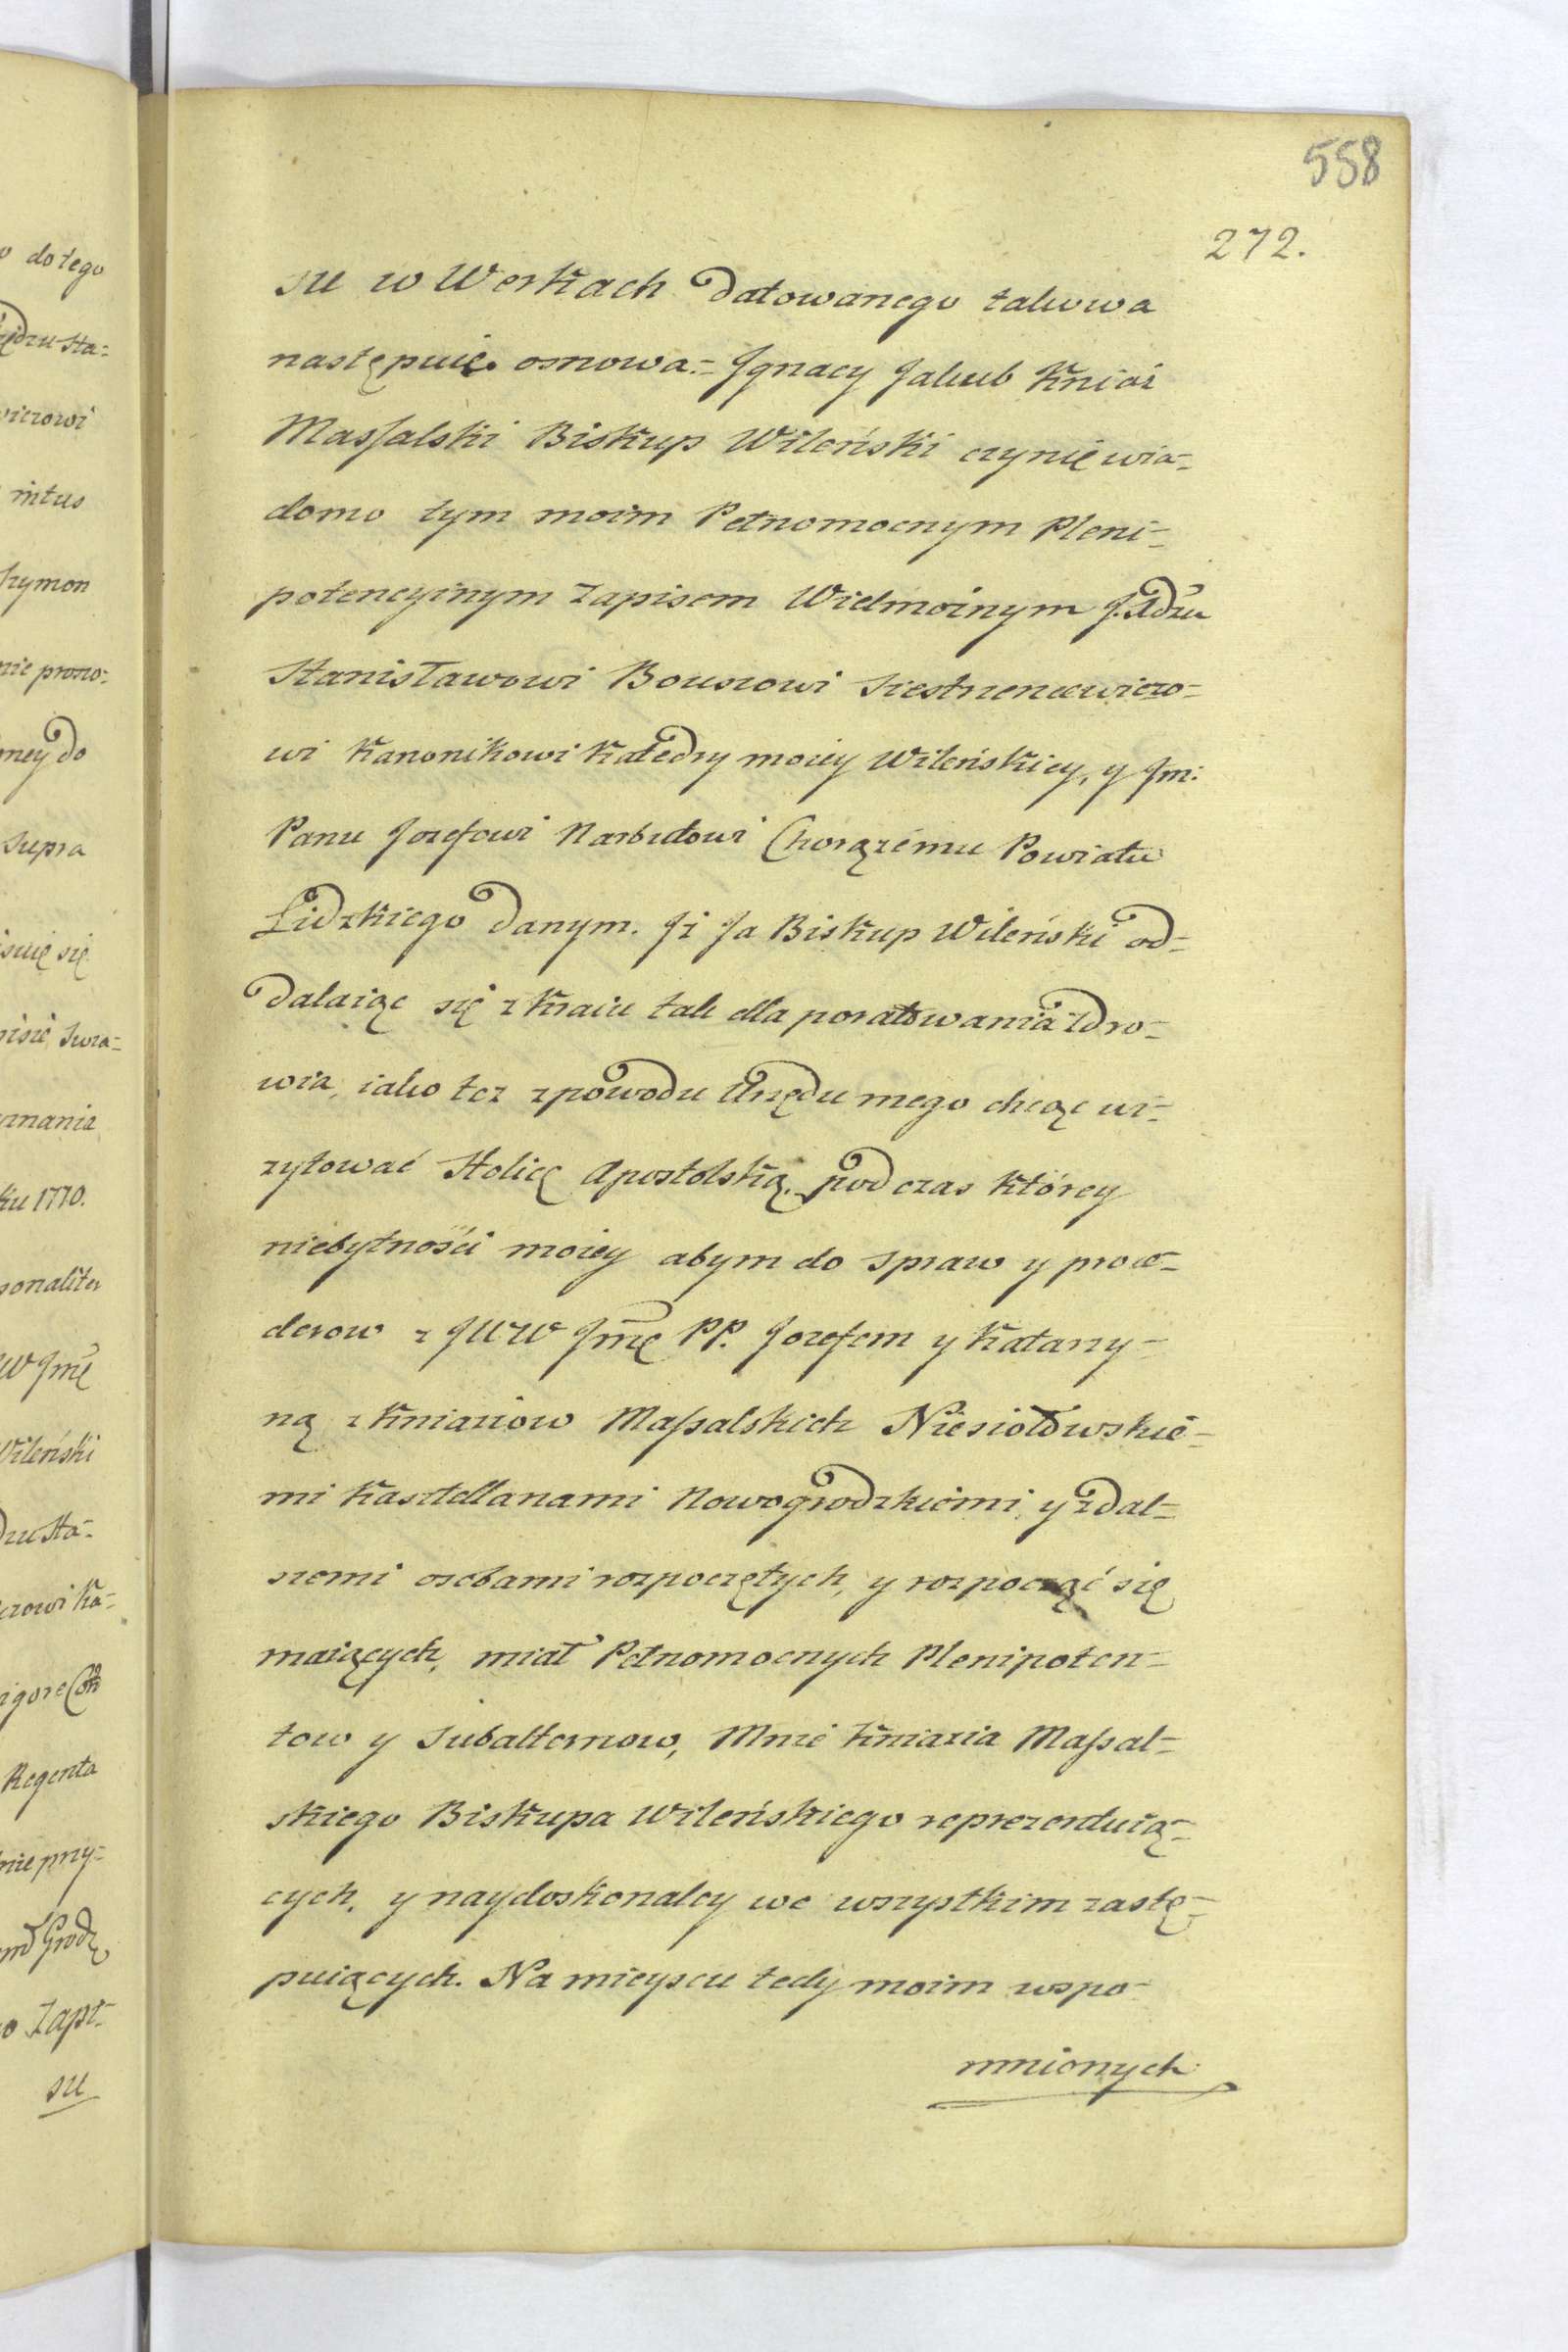 558
272.
su w Werkach datowanego takowa
następuię osnowa.= Jgnacy Jakub Kniaź
Massalski Biskup Wileński czynię wia=
domo tym moim Pełnomocnym Pleni=
potencyinym Zapisem Wielmożnym J. Xdzu
Stanisławowi Bouszowi Siestrzencewiczo=
wi Kanonikowi Katedry moiey Wileńskiey, y Jm:
Panu Jozefowi Narbutowi Chorązému Powiatu
Lidzkiego danym. Jż Ja Biskup Wileński od=
dalaiąc się z Kraiu tak dla poratowania zdro=
wia, iako tez zpowodu Urzędu mego chcąc wi=
zytować Stolicę Apostolską, pod czas którey
niebytności moiey abym do spraw y proce=
derow z JWW Jmę PP. Jozefem y Katarzy=
ną z Kniaziow Massalskich Niesiołowskie=
mi Kasztellanami Nowogrodzkiemi, y zdal=
szemi osobami rozpoczętych, y rozpocząć się
maiących, miał Pełnomocnych Plenipoten=
tow y Subalternow, Mnie Kniazia Massal=
skiego Biskupa Wileńskiego reprezentuią=
cych, y naydoskonaley we wszystkim zastę=
puiących. Na mieyscu tedy moim wspo=
mnionych
do tego
Xiędzu Sta=
wiczowi
intus
Szymon
ney do
Supra
się
znania
ku 1770.
sonaliter
W Jmę
Wileński
dzu Sta=
czowi Ka=
Regenta
nie przy=
o Zapi=
su